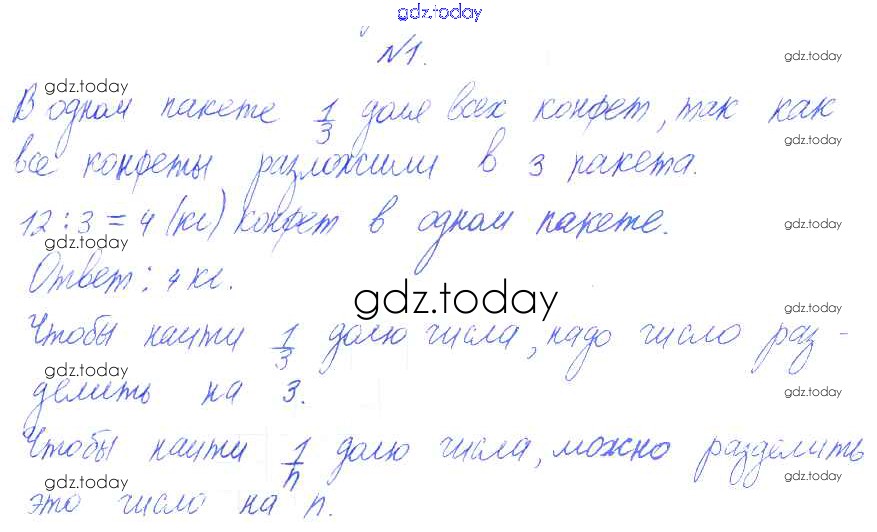 gdz.today
№1.
gdz.today
gdz.today
В одном пакете 1/3 доля всех конфет, так как
gdz.today
все конфеты разложили в 3 пакета.
12 : 3 = 4 (кг) конфет в одном пакете.
gdz.today
gdz.today
Ответ: 4 кг.
gdz.today
gdz.today
Чтобы найти 1/3 долю числа, надо число раз-
gdz.today
делить на 3.
gdz.today
Чтобы найти 1/n долю числа, можно разделить
gdz.today
gdz.today
это число на n.